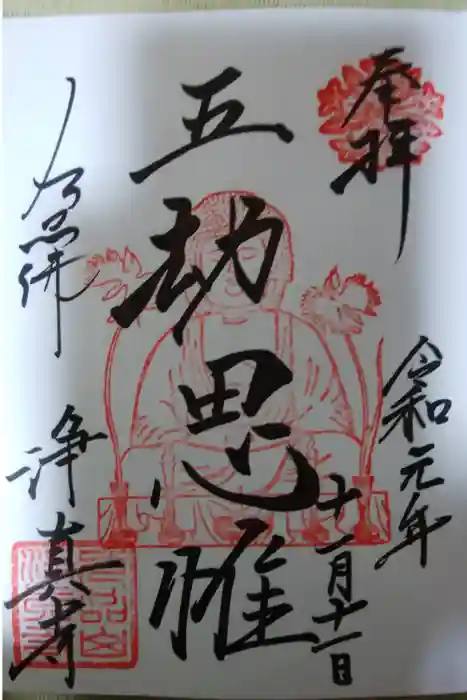 奉拝
令和元年
十一月十一日
五劫思惟
浄真寺